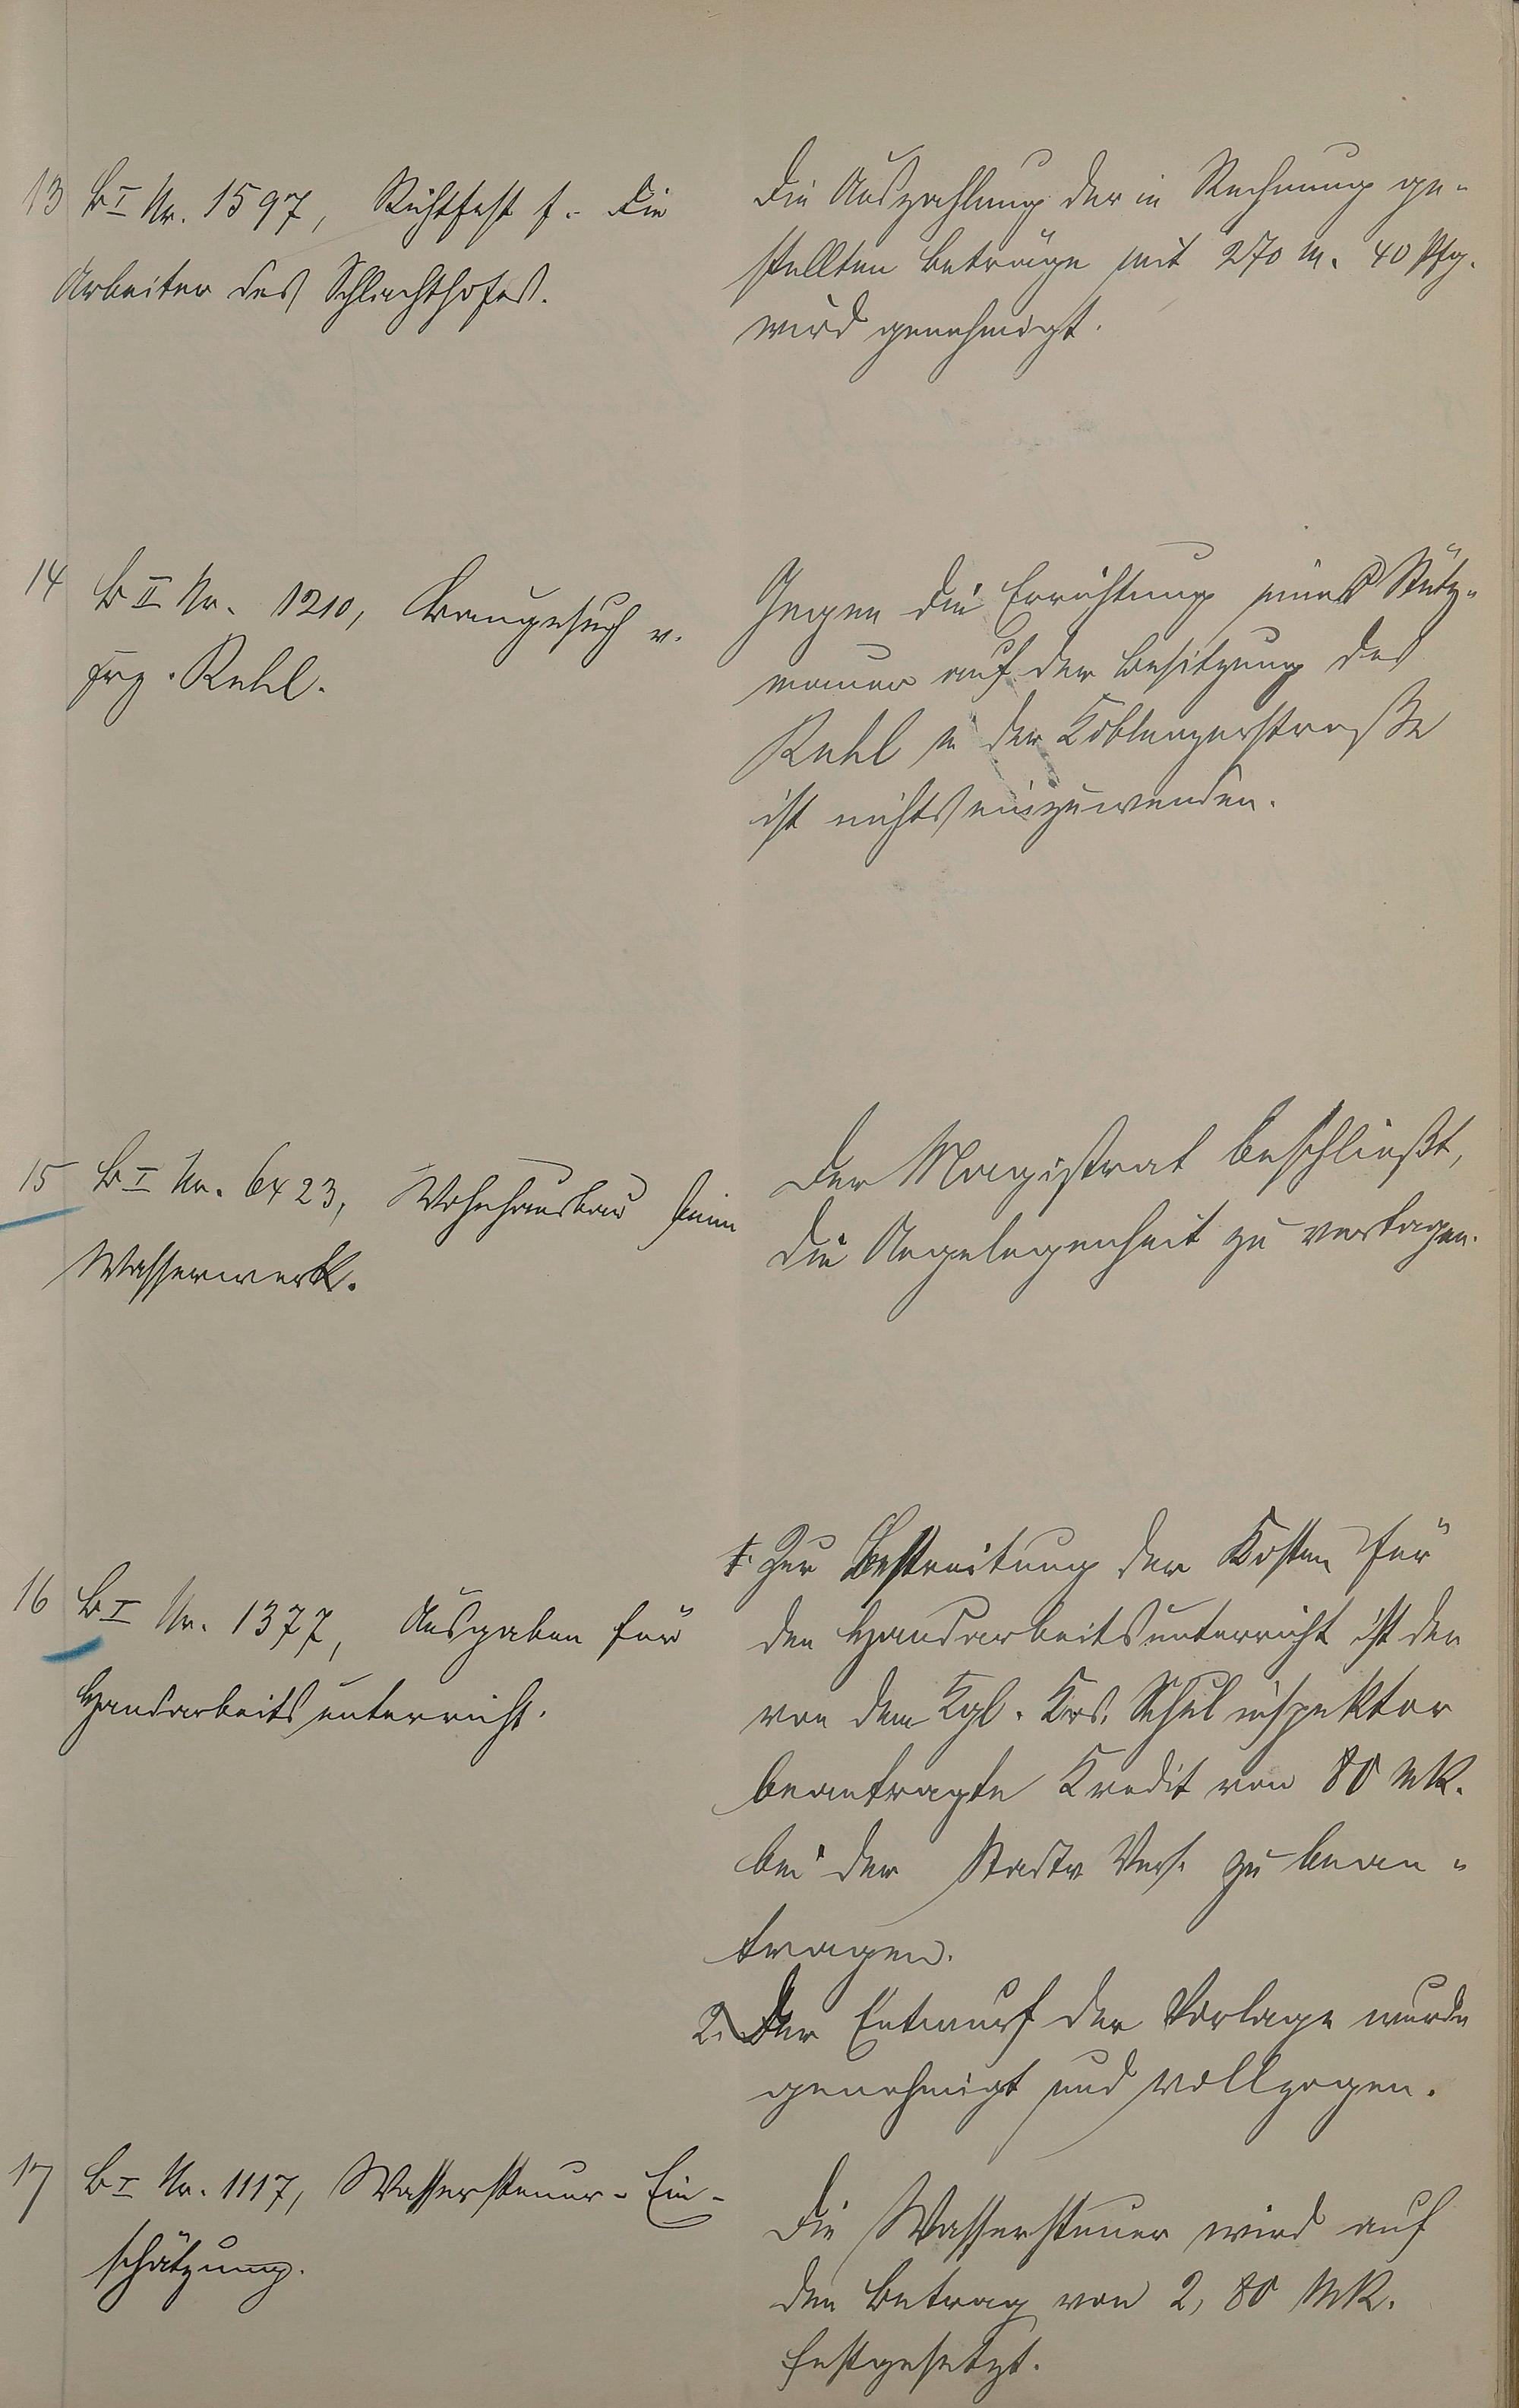 13 B I Nr. 1597, Richtfest f. die
Arbeiter des Schlachthofes.
Die Auszahlung der in Rechnung ge-
stellten Beträge mit 270 M. 40 Pfg.
wird genehmigt.
14 B II Nr. 1210, Baugesuch v.
Frz. Rehl.
Gegen die Errichtung einer Stütz-
mauer auf der Besitzung des
Rehl in der Koblenzerstraße
ist nichts einzuwenden.
15 B I Nr. 6423, Wohnhausbau beim
Wasserwerk.
Der Magistrat beschließt,
die Angelegenheit zu vertagen.
16 B I Nr. 1377, Ausgaben für
Handarbeitsunterricht.
1. Zur Bestreitung der Kosten für
den Handarbeitsunterricht ist der
von dem Kgl. Krs. Schulinspektor
beantragte Kredit von 80 Mk.
bei der Stadtv. Vers. zu bean-
tragen.
2. Der Entwurf der Vorlage wurde
genehmigt und vollzogen.
17 B I Nr. 1117, Wassersteuer-Ein-
schätzung.
Die Wassersteuer wird auf
den Betrag von 2,80 Mk.
festgesetzt.